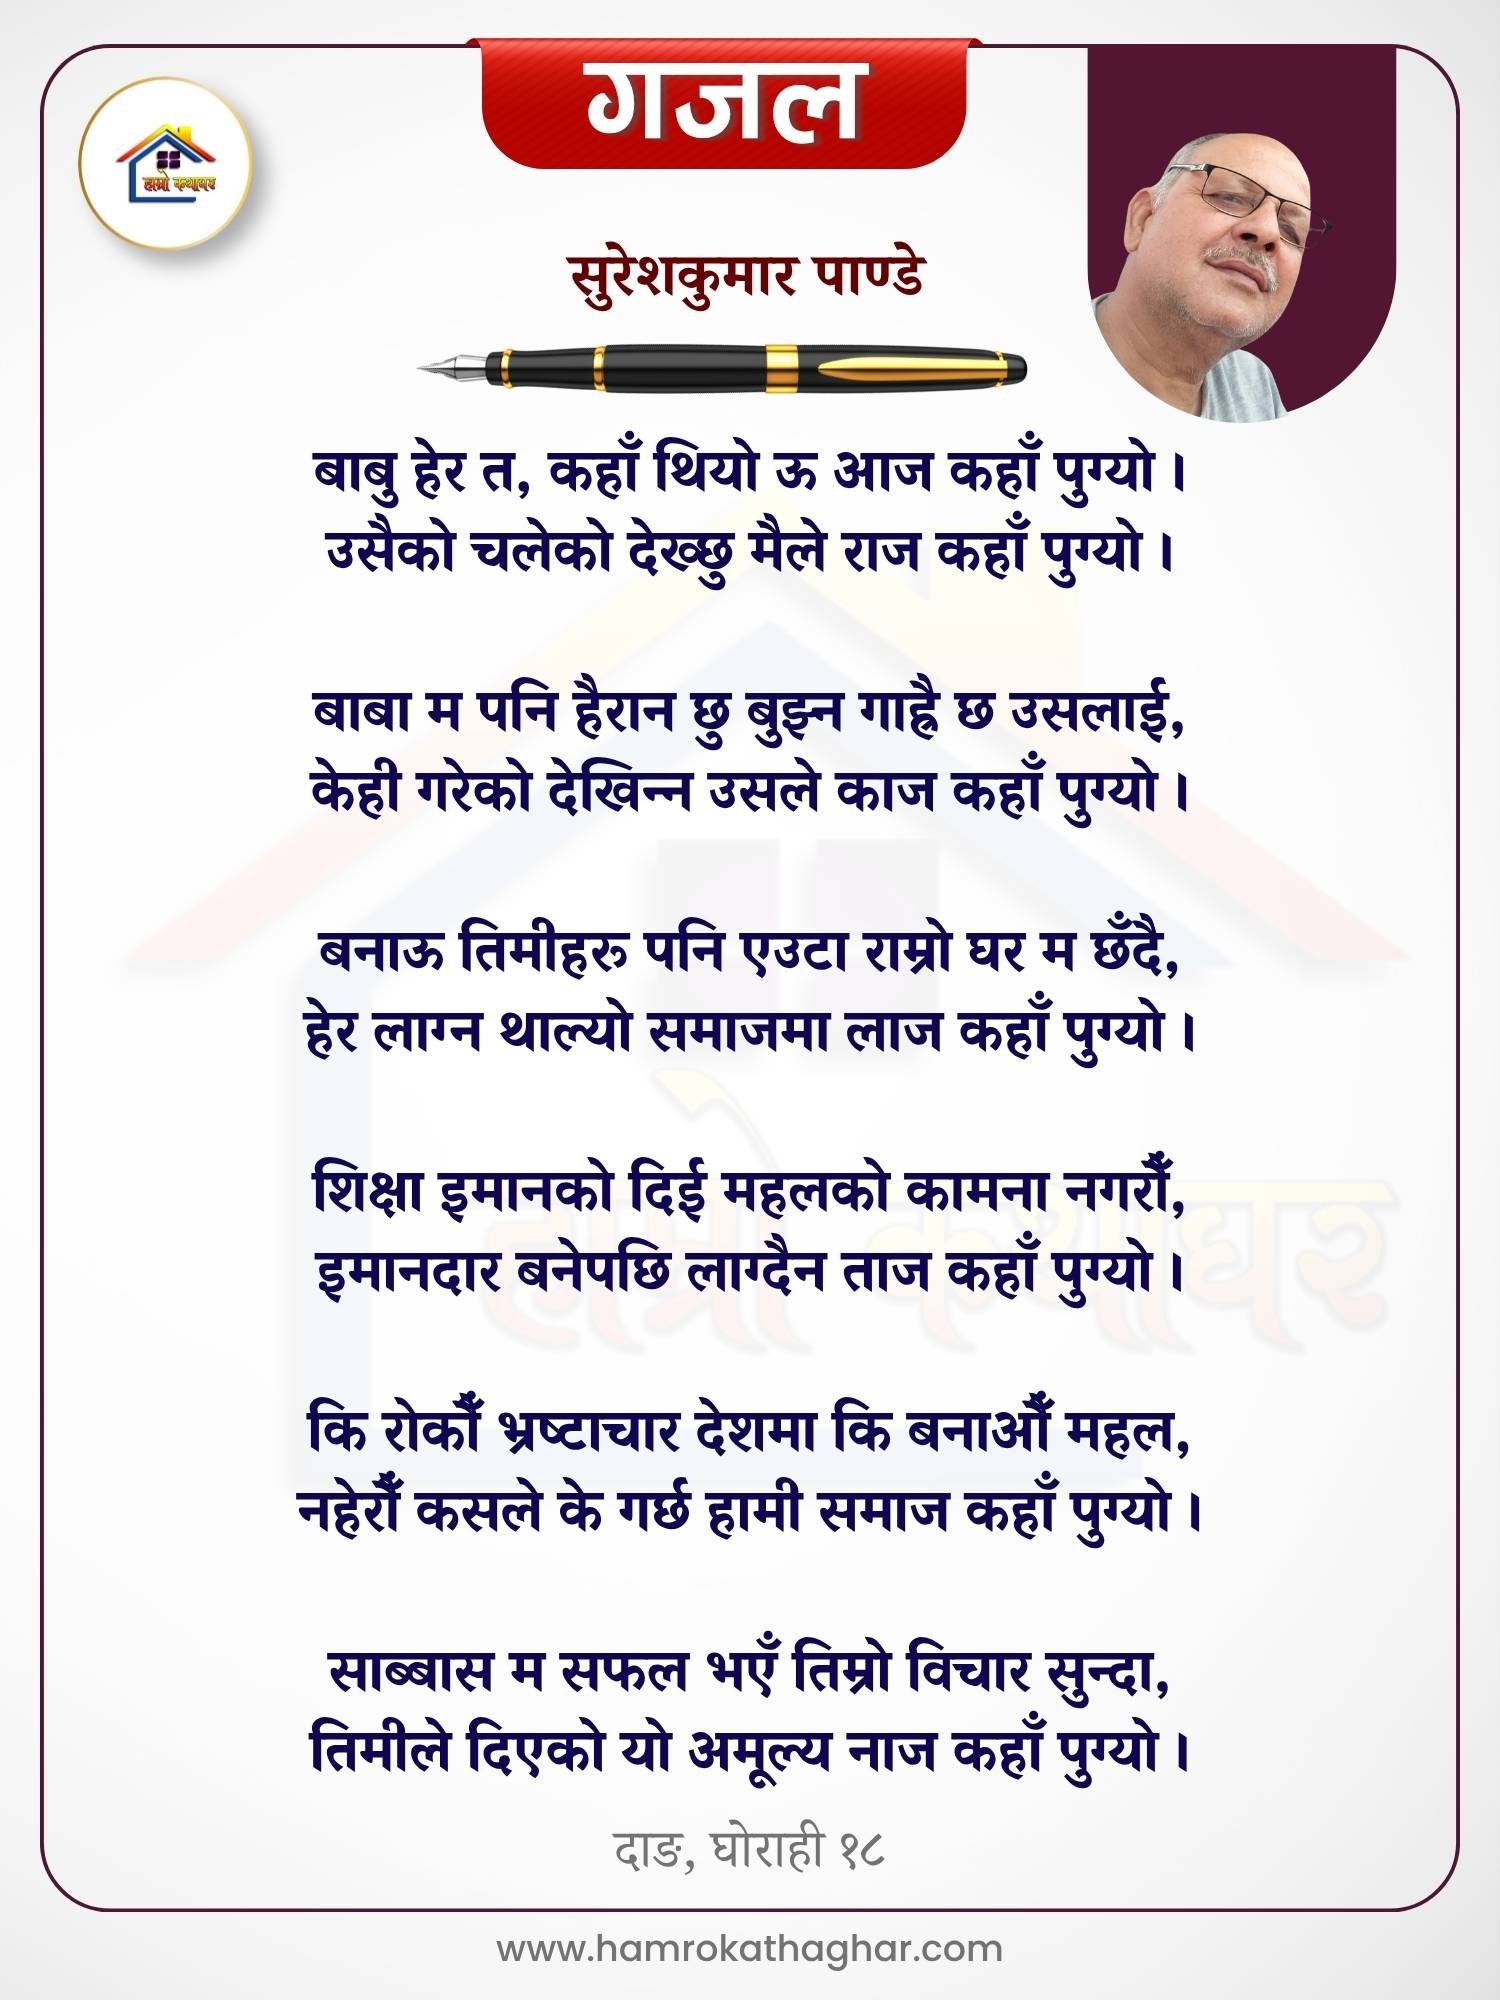 गजल
हाम्रो कथाघर
सुरेशकुमार पाण्डे
बाबु हेर त, कहाँ थियो ऊ आज कहाँ पुग्यो ।
उसैको चलेको देख्छु मैले राज कहाँ पुग्यो ।
बाबा म पनि हैरान छु बुझ्न गाह्रै छ उसलाई,
केही गरेको देखिन्न उसले काज कहाँ पुग्यो ।
बनाऊ तिमीहरू पनि एउटा राम्रो घर म छँदै,
हेर लाग्न थाल्यो समाजमा लाज कहाँ पुग्यो ।
शिक्षा इमानको दिई महलको कामना नगरौँ,
इमानदार बनेपछि लाग्दैन ताज कहाँ पुग्यो ।
कि रोकौँ भ्रष्टाचार देशमा कि बनाऔँ महल,
नहेरौँ कसले के गर्छ हामी समाज कहाँ पुग्यो ।
साब्बास म सफल भएँ तिम्रो विचार सुन्दा,
तिमीले दिएको यो अमूल्य नाज कहाँ पुग्यो ।
दाङ, घोराही १८
www.hamrokathaghar.com